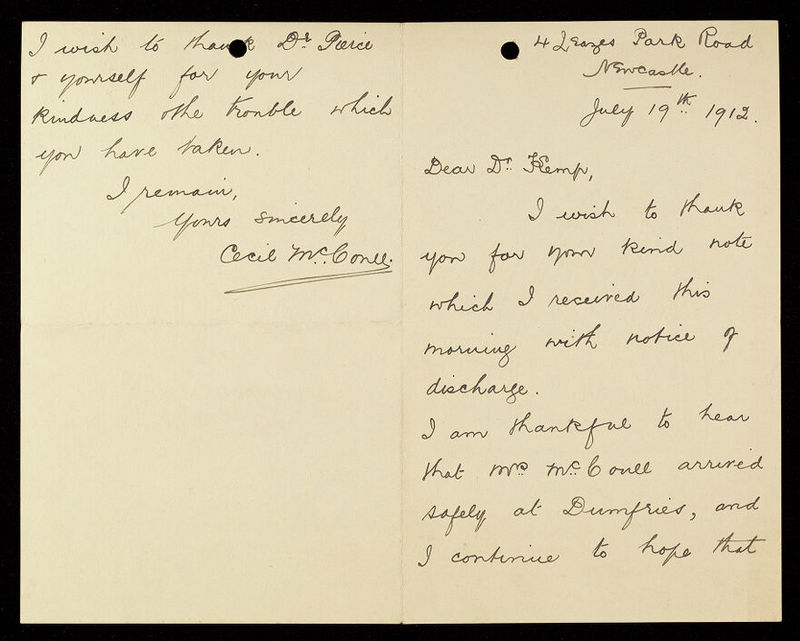 4 Leazes Park Road
Newcastle.
July 19th 1912.
Dear Dr. Kemp,
I wish to thank
you for your kind note
which I received this
morning with notice of
discharge.
I am thankful to hear
that Mrs McConll arrived
safely at Dumfries, and
I continue to hope that
I wish to thank Dr Pierce
& yourself for your
kindness & the trouble which
you have taken.
I remain,
Yours sincerely
Cecil McConll.